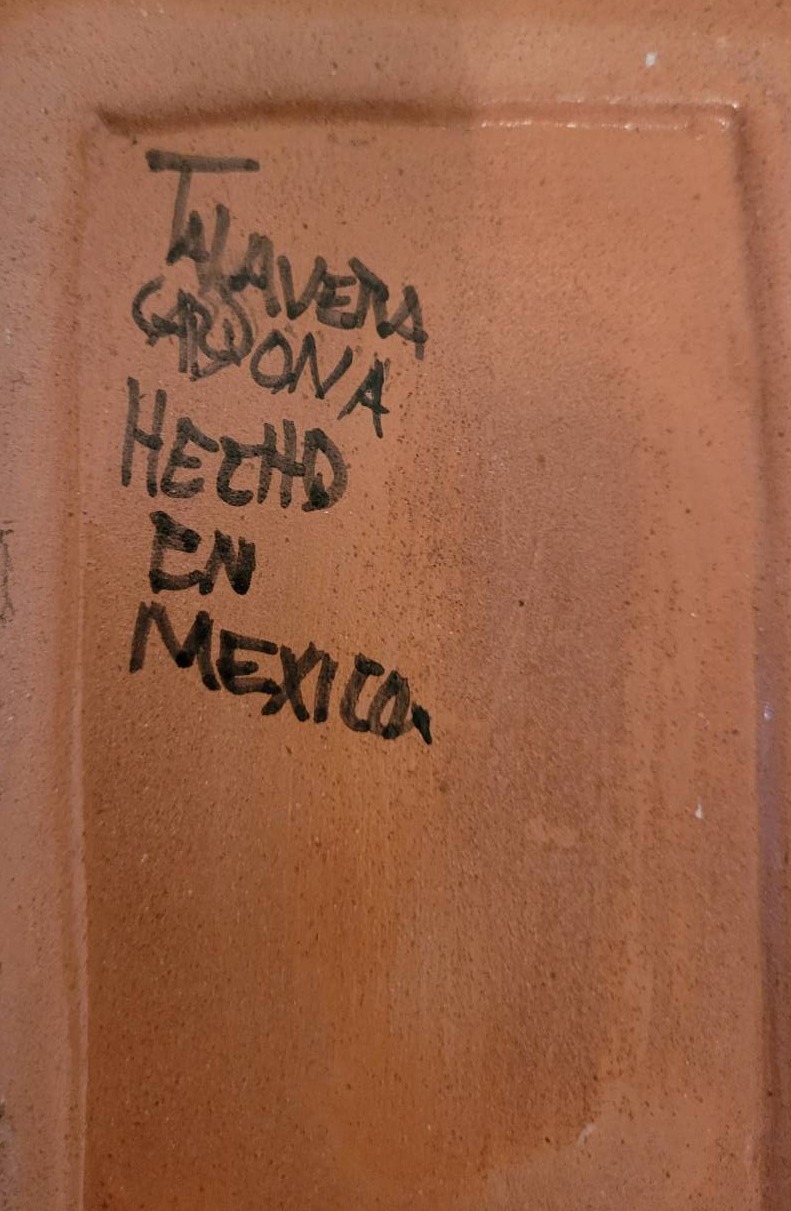 TALAVERA
CARDONA
HECHO
EN
MEXICO.